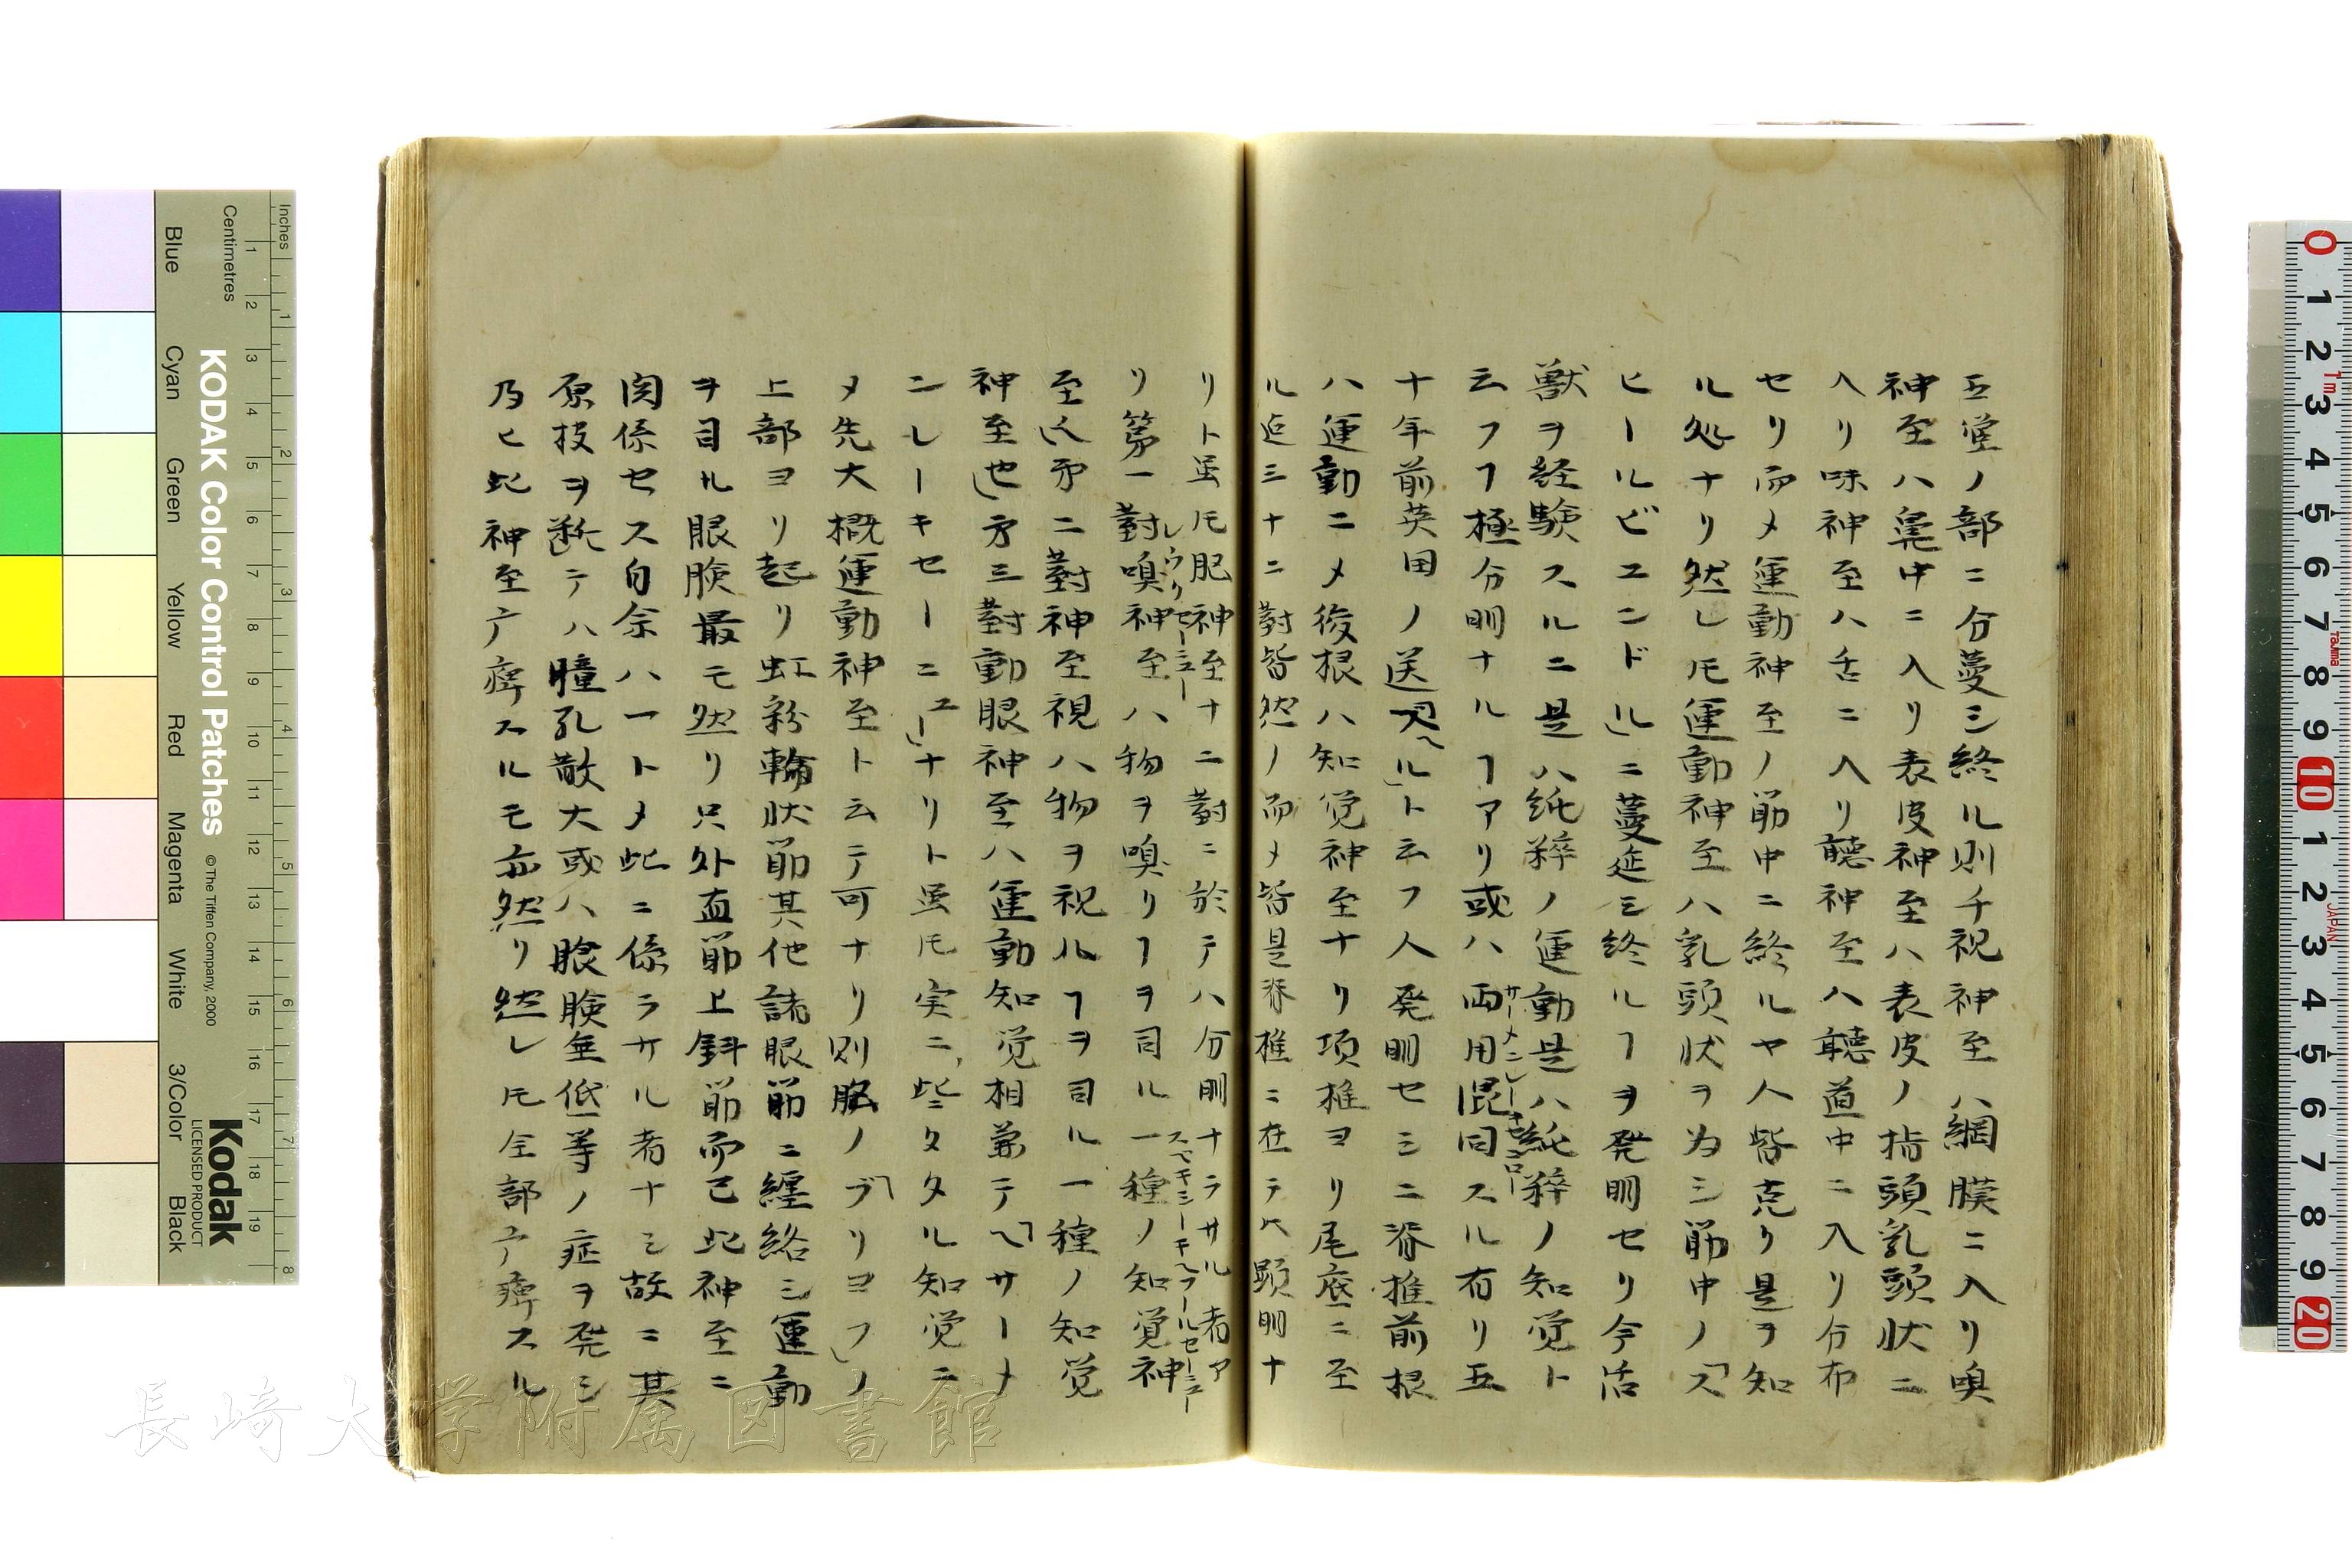 五㝫ノ部ニ分蔓シ終ル則チ視神至ハ網膜ニ入リ嗅
神至ハ鼻中ニ入リ表皮神至ハ表皮ノ指頭乳頭状ニ
入リ味神至ハ舌ニ入リ聴神至ハ聴道中ニ入リ分布
セリ而メ運動神至ノ筋中ニ終ルヤ人皆克ク是ヲ知
ル処ナリ然レ𪜈運動神至ハ乳頭状ヲ为シ筋中ノ「ス
ヒールビユンドル」ニ蔓延シ終ルヿヲ発明セリ今活
獣ヲ経験スルニ是ハ純粋ノ運動是ハ純粋ノ知覚ト
云フヿ極分明ナルヿアリ或ハ両用混同スル有リ五
十年前英国ノ送「ベル」ト云フ人発明セシニ脊椎前根
ハ運動ニメ後根ハ知覚神至ナリ項椎ヨリ尾底ニ至
ル迠三十二對皆然ノ而メ皆是脊椎ニ在テハ顕明ナ
リト虽𪜈脳神至十二對ニ於テハ分明ナラサル者ア
レウリセーニュー
スペキシーチヘフールセーニュー
リ第一對嗅神至ハ物ヲ嗅クヿヲ司ル一種ノ知覚神
至也第二對神至視ハ物ヲ視ルヿヲ司ル一種ノ知覚
神至也」第三對動眼神至ハ運動知覚相兼テ「ヘサーメ
ンレーキセーニユー」ナリト虽𪜈実ニ些ニタル知覚ニ
メ先大概運動神至ト云テ可ナリ則脳ノ「ブリヨフ」ノ
上部ヨリ起リ虹彩輪状筋其他諸眼筋ニ纏絡シ運動
ヲ司ル眼瞼最モ然リ只外直筋上斜筋而已此神至ニ
関係セス自余ハ一トメ此ニ係ラサル者ナシ故ニ其
原枝ヲ断テハ瞳孔散大或ハ眼瞼垂低等ノ症ヲ発シ
乃ヒ此神至亡痺スルモ亦然リ然レ𪜈全部亡痺スル
長崎大学附属図書館
Inches
Centimetres
KODAK Color Control Patches
© The Tiffen Company, 2000
Kodak
LICENSED PRODUCT
Blue
Cyan
Green
Yellow
Red
Magenta
White
3/Color
Black